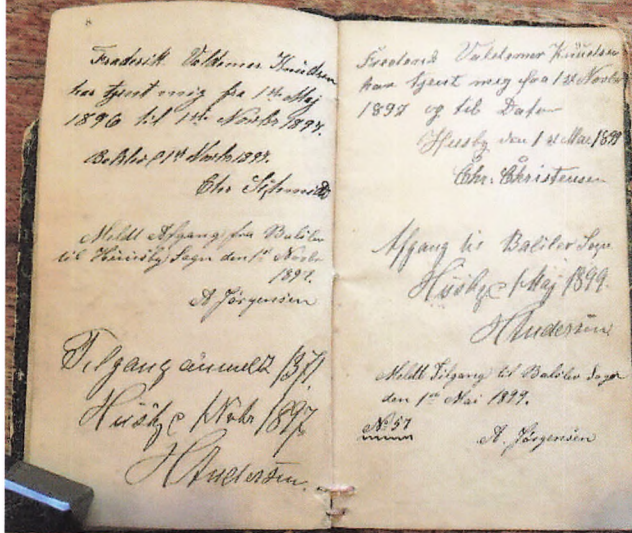 8
Frederik Valdemar Knudsen
har tjent mig fra 1ste Maj
1896 til 1ste Novbr 1897.
Balslev 1ste Novbr 1897.
Chr Schmidt
Meldt Afgang fra Balslev
til Huusby Sogn den 1ste Novbr
1897.
A Jørgensen
Tilgang anmeldt
Huusby 1 Nvbr 1897
H Andersen
Frederik Valdemar Knudsen
har tjent mig fra 1ste Novbr
1897 og til Dato
Husby den 1ste Mai 1899
Chr. Christensen
Afgang til Balslev Sogn
Huusby 1 Maj 1899.
H Andersen
Meldt Tilgang til Balslev Sogn
den 1ste Mai 1899.
No 57
A. Jørgensen